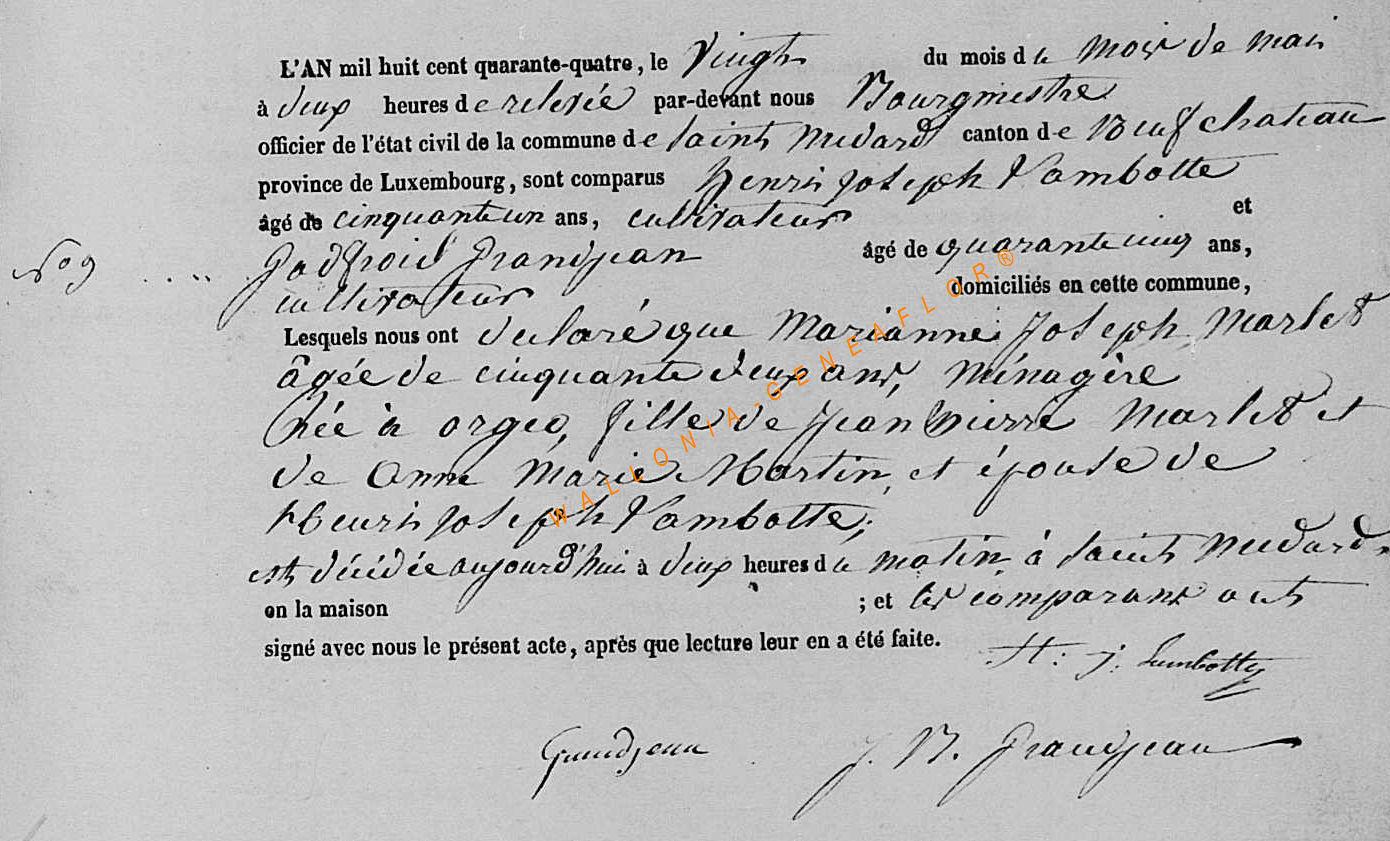 L'AN mil huit cent quarante-quatre, le vingt du mois de mois de mai
à deux heures de relevée par-devant nous Bourgmestre
officier de l'état civil de la commune de saint medard canton de Neufchateau
province de Luxembourg, sont comparus henri joseph Lambotte
âgé de cinquante un ans, cultivateur et
No 9 .... godfroid grandjean âgé de quarante cinq ans,
cultivateur domiciliés en cette commune,
Lesquels nous ont declaré que marianne joseph marlet
âgée de cinquante deux ans, ménagère
née à orgeo, fille de jean pierre marlet et
de anne marie Martin, et épouse de
henri joseph Lambotte;
est décédée aujourd'hui à deux heures du matin à saint medard
en la maison ; et les comparans ont
signé avec nous le présent acte, après que lecture leur en a été faite.
H: j: Lambotte
Grandjean J. B. grandjean
WALLONIA-GENEAFLOR®